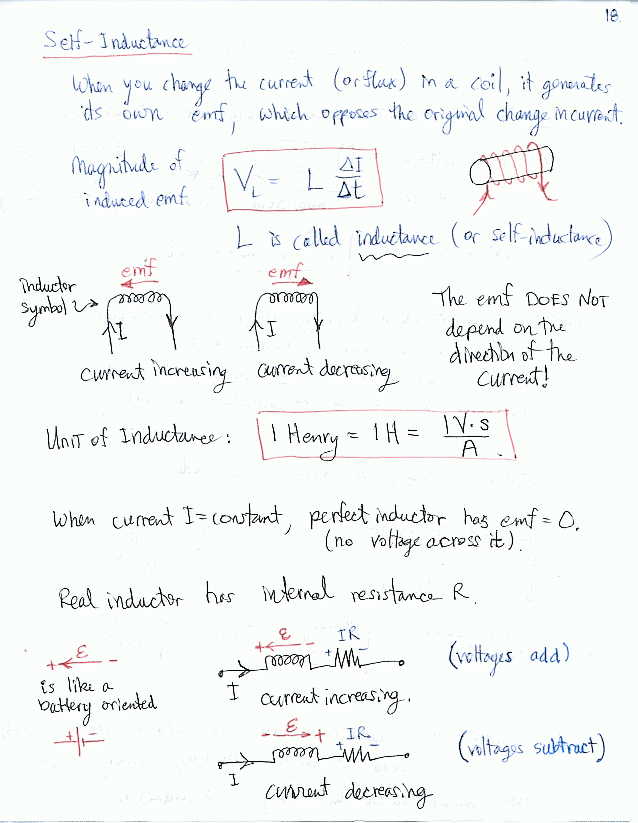 18.
Self-Inductance
When you change the current (or flux) in a coil, it generates
its own emf, which opposes the original change in current.
Magnitude of
induced emf
V_L = L ΔI/Δt
L is called inductance (or self-inductance)
inductor
symbol
emf
I
current increasing
emf
I
current decreasing
The emf DOES NOT
depend on the
direction of the
current!
Unit of Inductance: 1 Henry = 1 H = 1V·s/A.
When current I = constant, perfect inductor has emf = 0.
(no voltage across it).
Real inductor has internal resistance R.
+ ε -
is like a
battery oriented
+ -
+ ε - IR
+ -
I
current increasing.
(voltages add)
- ε + IR
+ -
I
current decreasing
(voltages subtract)